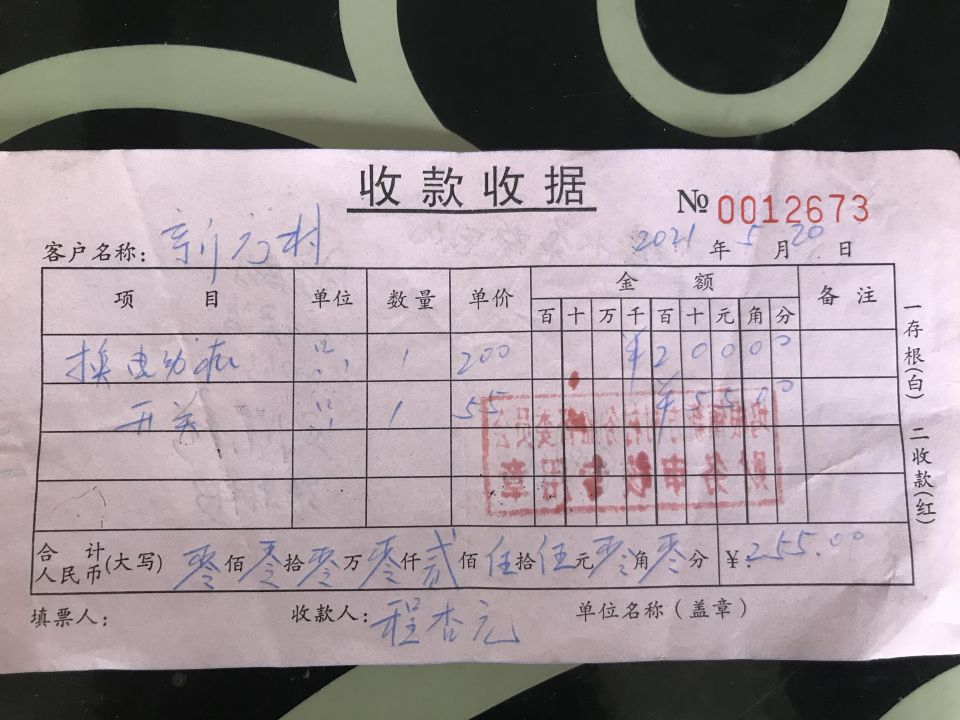 收款收据
№ 0012673
客户名称: 新方村
2021 年 5 月 20 日
项目 单位 数量 单价 金额 备注
百 十 万 千 百 十 元 角 分
换电动 1 200 ¥ 2 0 0 0 0
开关 1 55 ¥ 5 5 0 0
财务审 专用章
合计人民币(大写) 零佰零拾零万零仟贰佰伍拾伍元零角零分 ¥: 255.00
填票人: 收款人: 程杏元 单位名称(盖章)
一存根(白) 二收款(红)